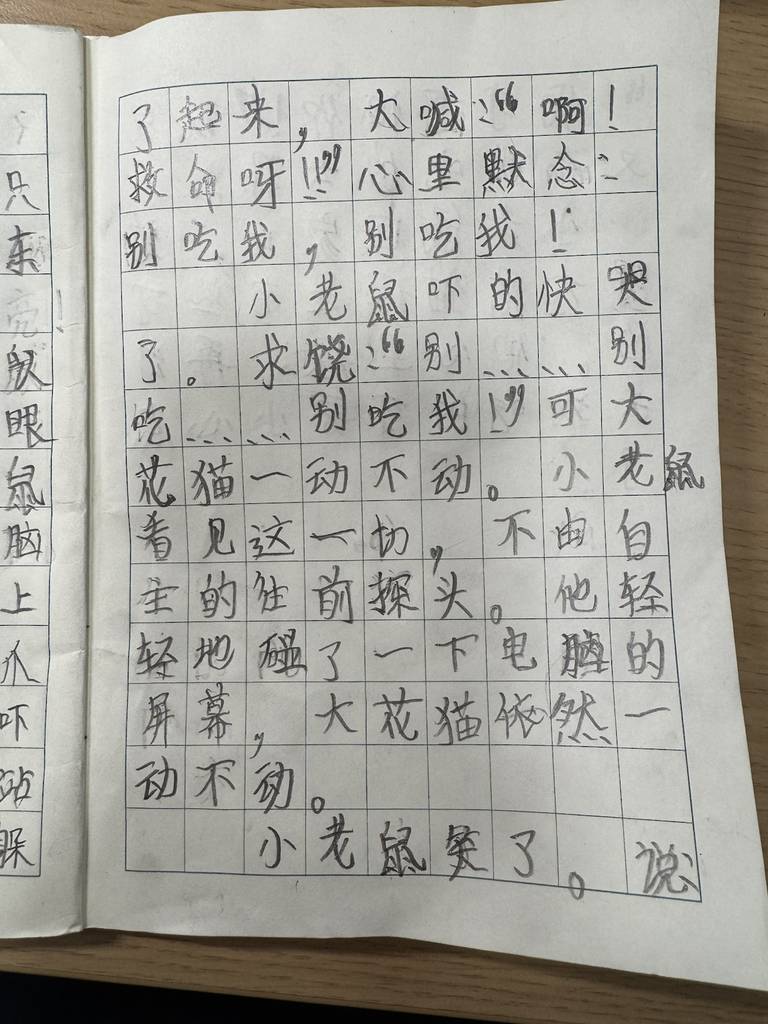 只
东
亮！
鼠
眼
鼠
脑
上
爪
吓
站
躲
了起来，大喊：“啊！
救命呀！！”心里默念：
别吃我，别吃我！
小老鼠吓的快哭
了。求饶：“别……别
吃……别吃我！”可大
花猫一动不动。小老鼠
看见这一切，不由自
主的往前探头。他轻
轻地碰了一下电脑的
屏幕，大花猫依然一
动不动。
小老鼠笑了。说